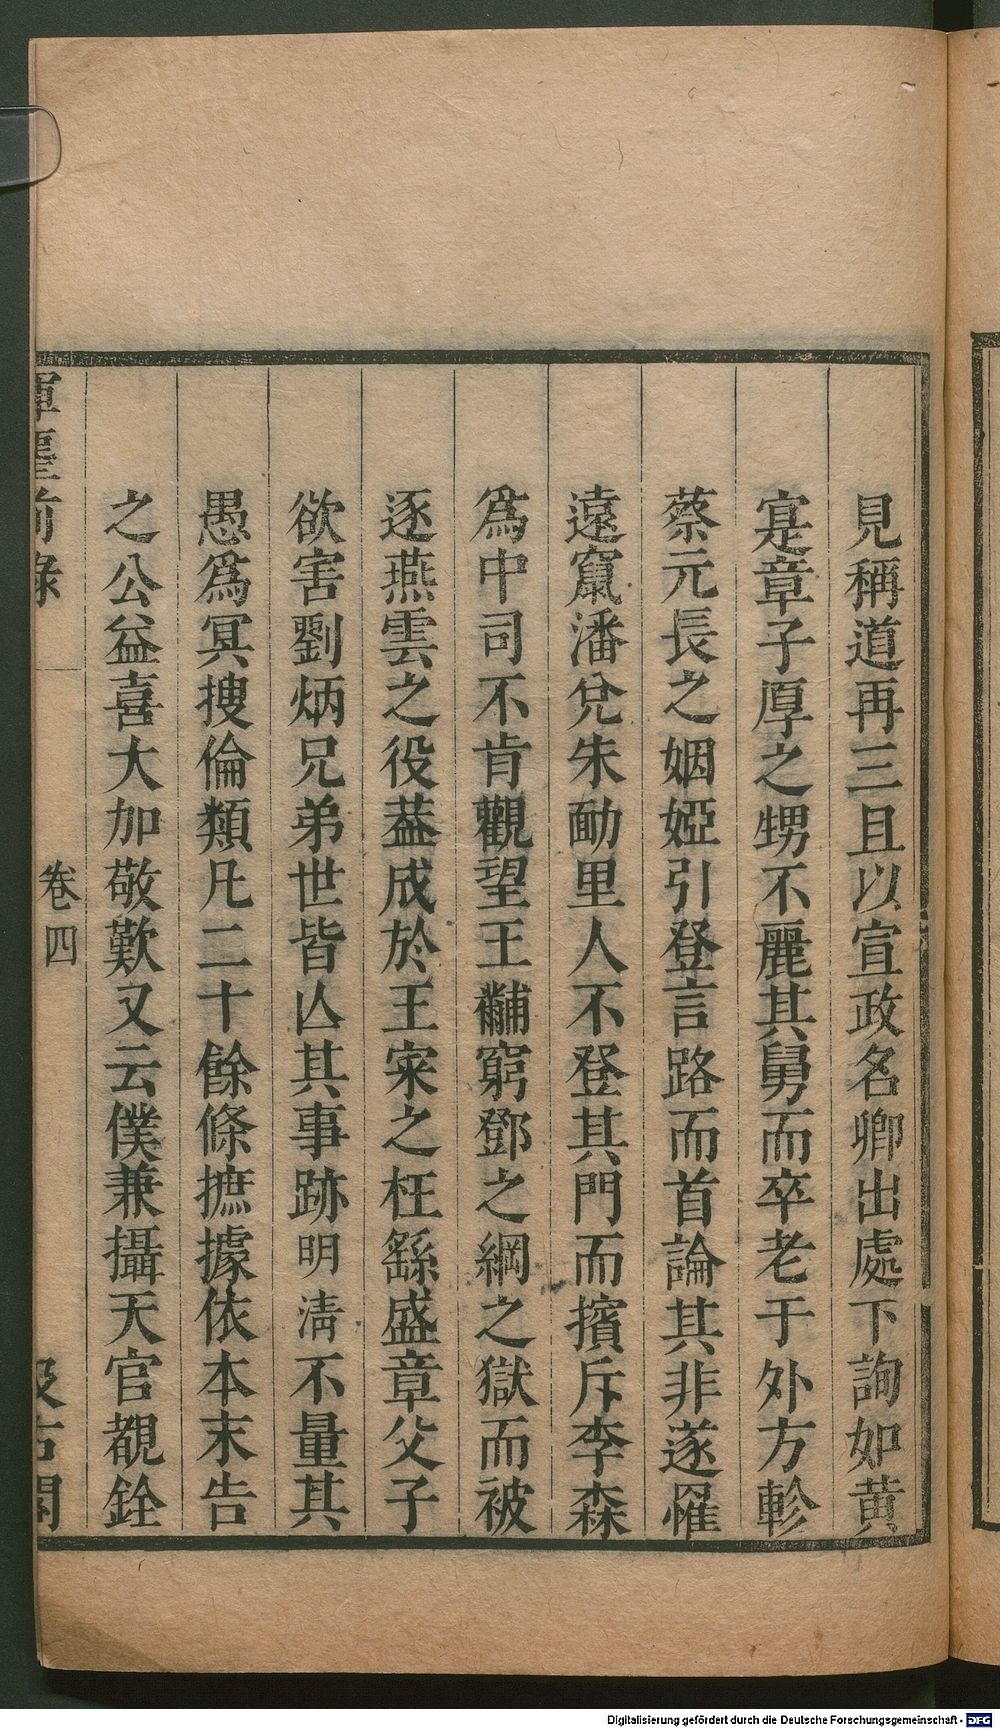 見稱道再三且以宣政名卿出處下詢如黄
寔章子厚之甥不麗其舅而卒老于外方軫
蔡元長之姻婭引登言路而首論其非遂罹
遠竄潘兌朱勔里人不登其門而擯斥李森
爲中司不肯觀望王黼窮鄧之綱之獄而被
逐燕雲之役葢成於王寀之枉繇盛章父子
欲害劉炳兄弟世皆亾其事跡明淸不量其
愚爲冥搜倫類凡二十餘條摭據依本末告
之公益喜大加敬歎又云僕兼攝天官覩銓
揮麈前錄
卷四
汲古閣
Digitalisierung gefördert durch die Deutsche Forschungsgemeinschaft - DFG